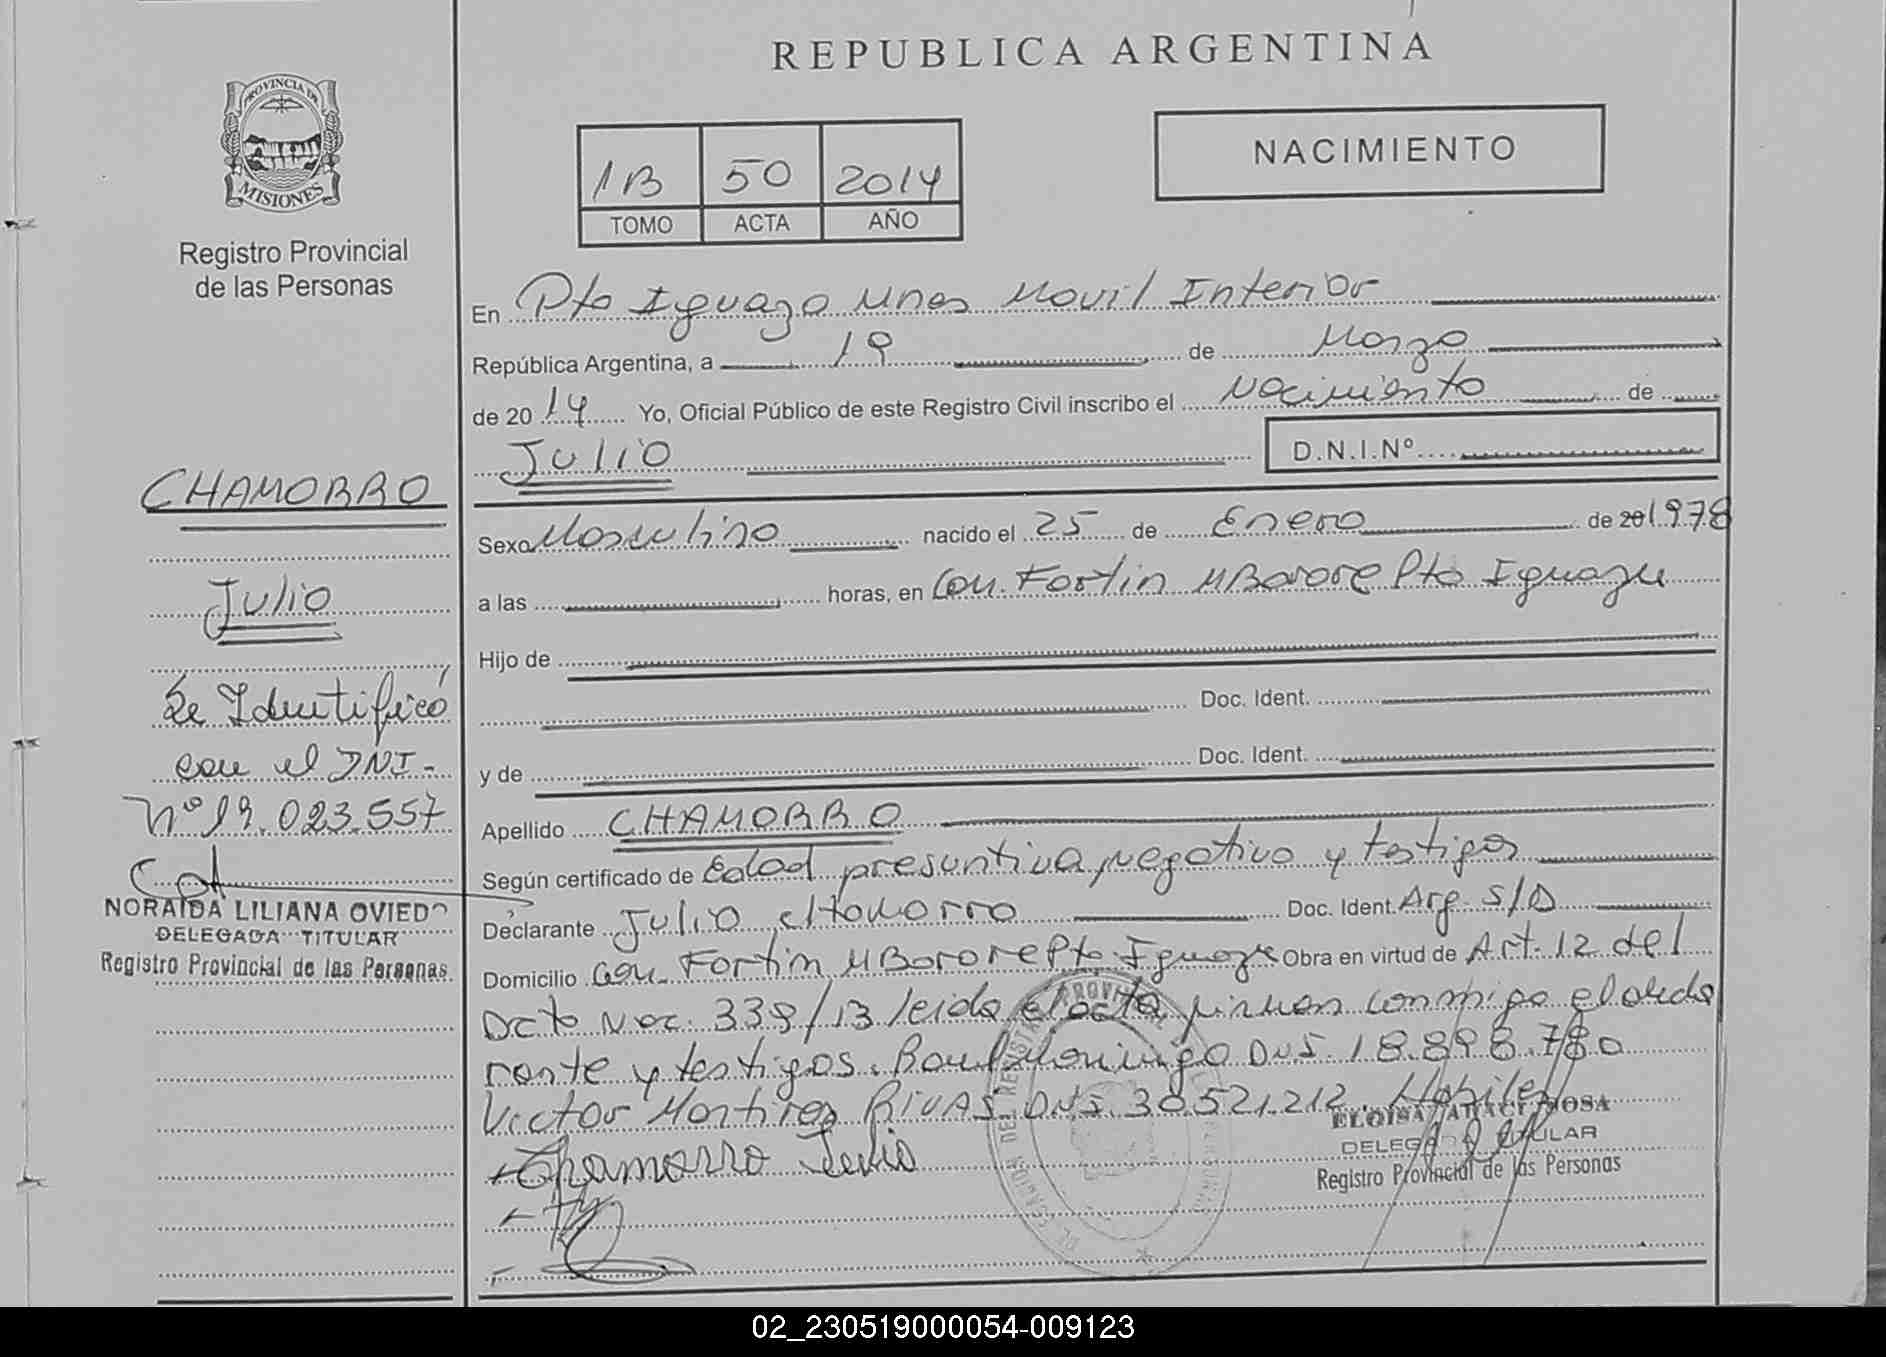 REPUBLICA ARGENTINA
PROVINCIA DE
MISIONES
Registro Provincial
de las Personas
1B 50 2014
TOMO ACTA AÑO
NACIMIENTO
En Pto Iguazo Unes Movil Interior
República Argentina, a 19 de Marzo
de 2014 Yo, Oficial Público de este Registro Civil inscribo el Nacimiento de
JULIO D.N.I.Nº
CHAMORRO
Julio
Se Identificó
con el DNI-
Nº19.023.557
NORAIDA LILIANA OVIEDO
DELEGADA TITULAR
Registro Provincial de las Personas.
Sexo Masculino nacido el 25 de Enero de 201978
a las horas, en Com. Fortin MBororePto Iguazu
Hijo de
Doc. Ident.
y de Doc. Ident.
Apellido CHAMORRO
Según certificado de Edad presuntiva, negativo y testigos
Declarante Julio Chamorro Doc. Ident. Arg. S/D
Domicilio Com. Fortin MBororePto Iguazu Obra en virtud de Art. 12 del
Dcto Nac. 339/13 leida el acta firman conmigo el decla
rante y testigos. Domingo DNI. 18.898.780
Victor Martinez RIVAS DNI. 30521212 Habiles
Chamorro Julio
ELOISA ARACI SOSA
DELEGADA TITULAR
Registro Provincial de las Personas
02_230519000054-009123